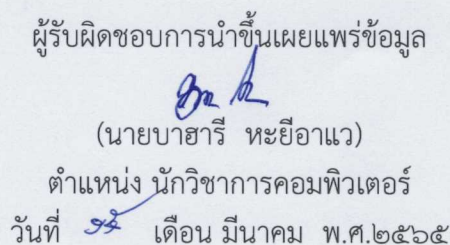 ผู้รับผิดชอบการนำขึ้นเผยแพร่ข้อมูล
(นายบาฮารี หะยีอาแว)
ตำแหน่ง นักวิชาการคอมพิวเตอร์
วันที่ เดือน มีนาคม พ.ศ.๒๕๖๕